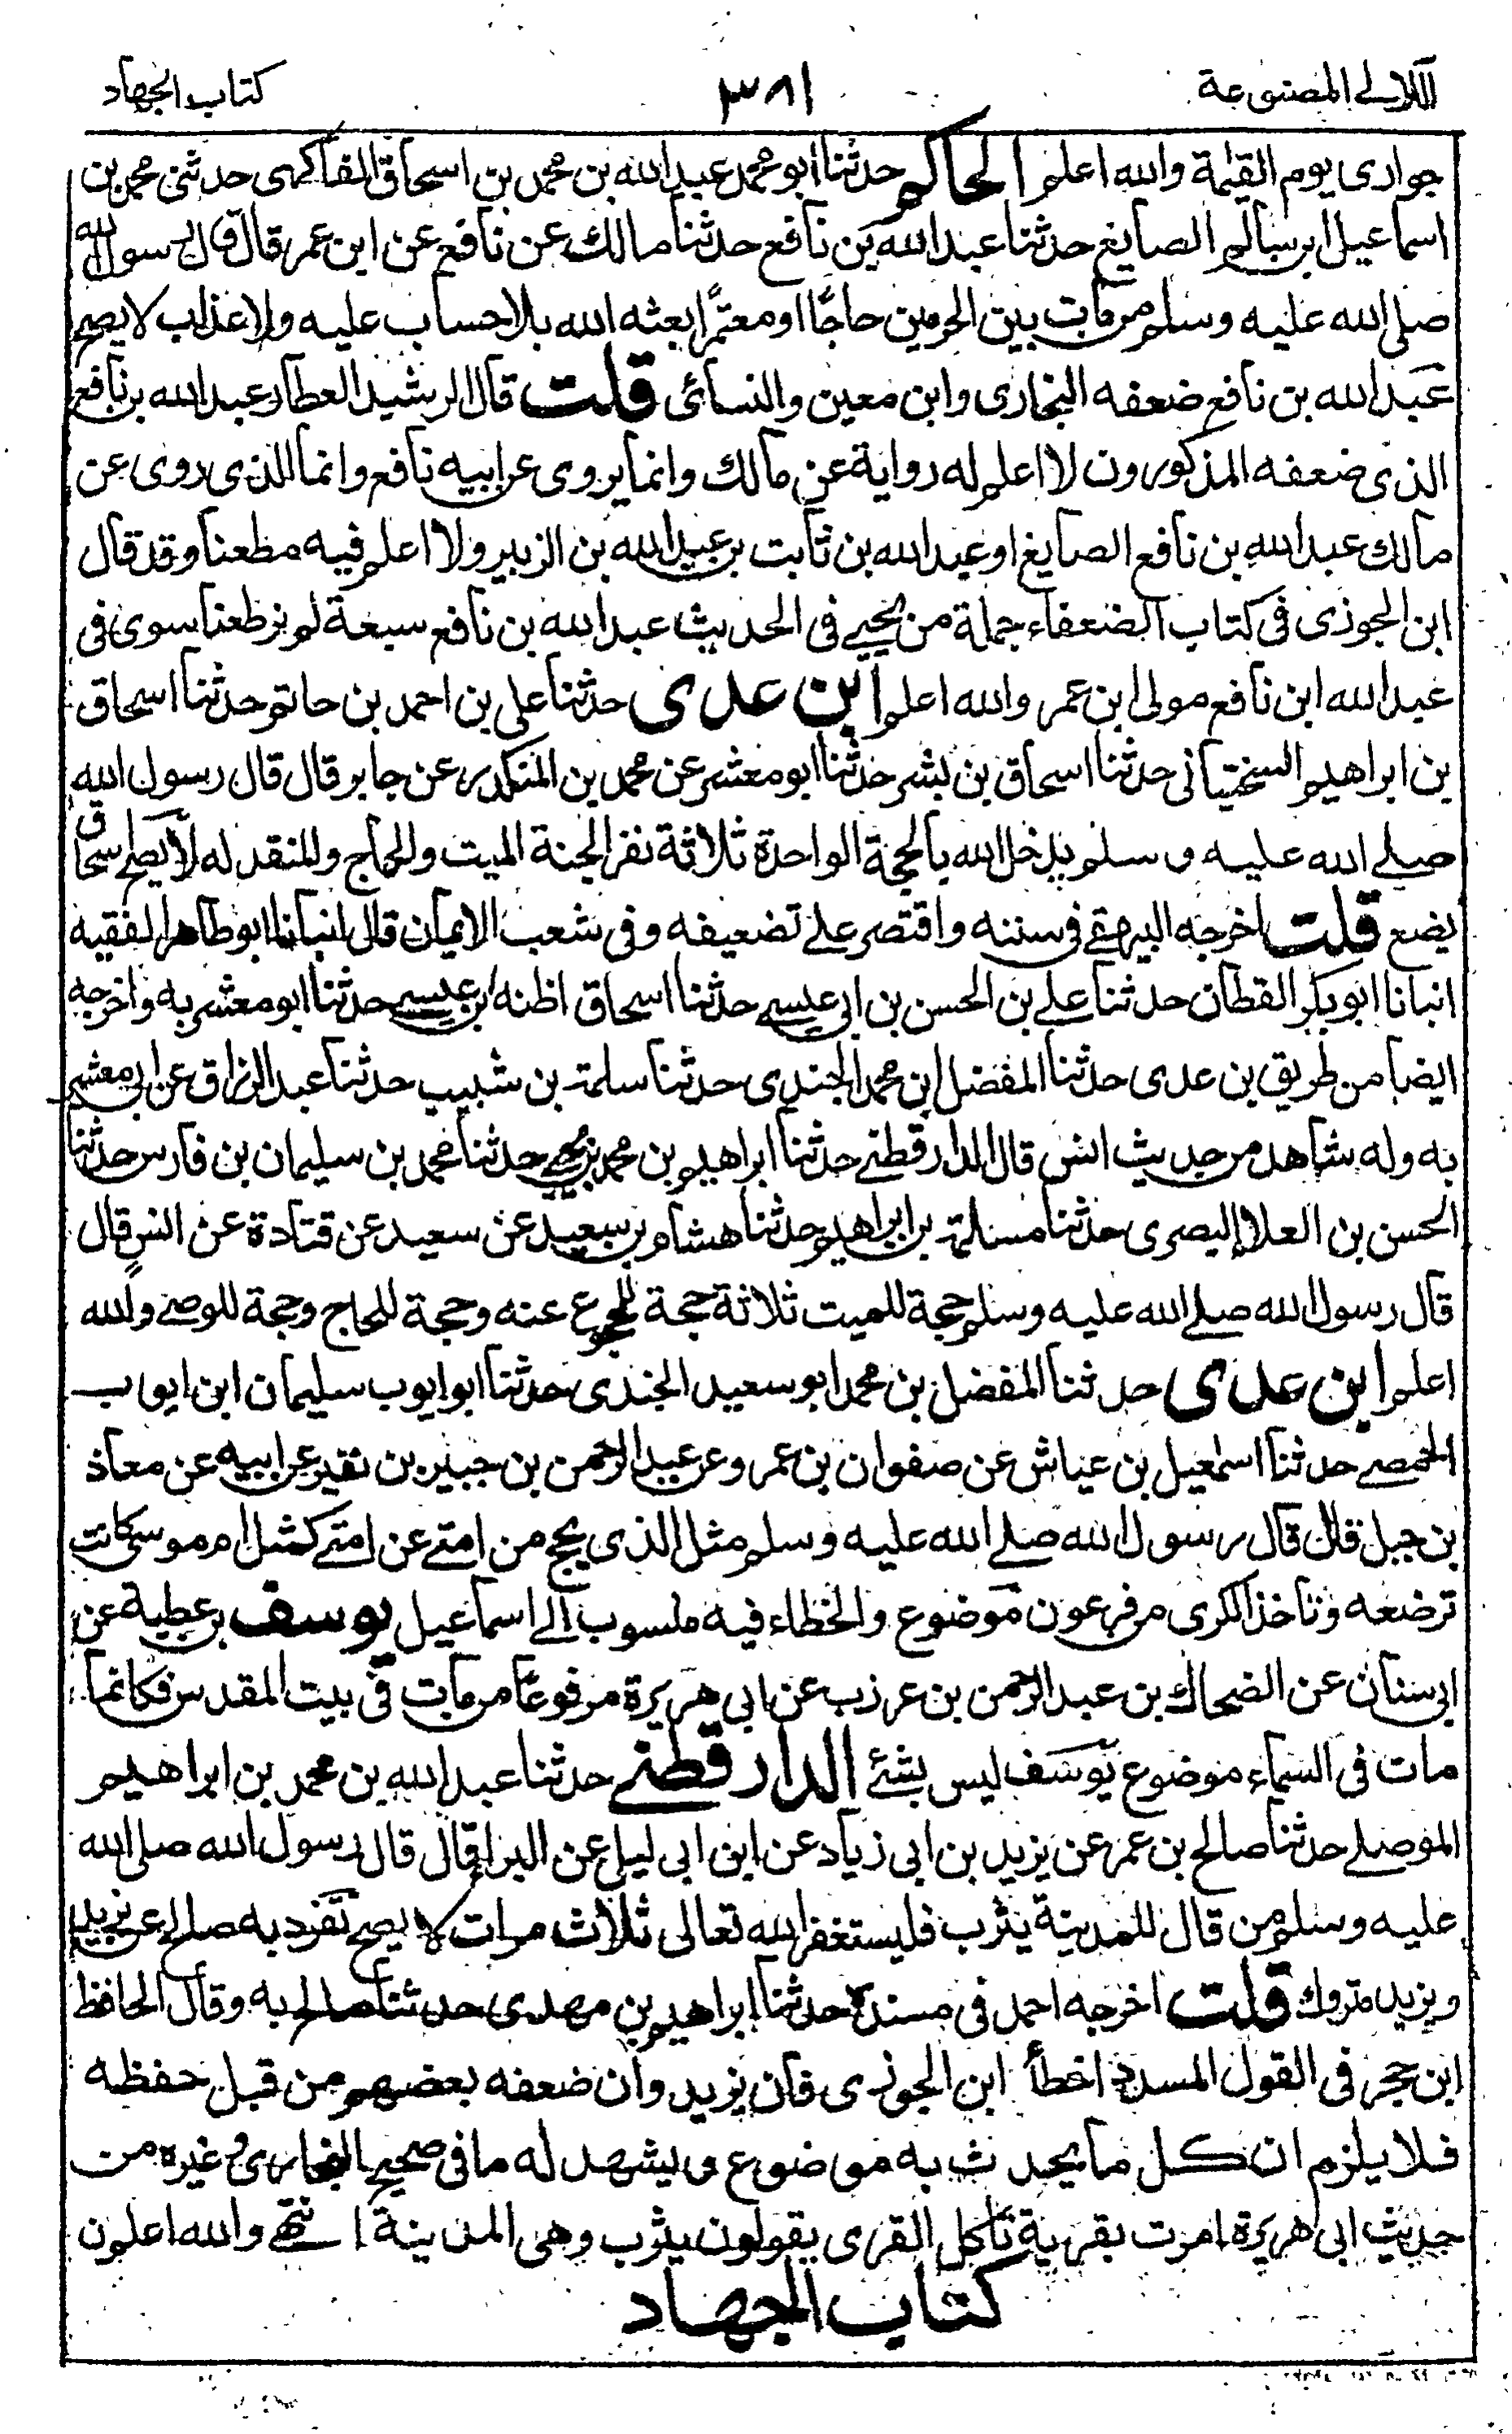 اللآلي المصنوعة ٣٨١ كتاب الجهاد
جواری يوم القيٰمة والله اعلم الحاكم حدثنا ابو محمد عبد الله بن محمد بن اسحاق الفاكهی حدثنی محمد بن
اسماعيل ابن سالم الصايغ حدثنا عبد الله بن نافع حدثنا مالك عن نافع عن ابن عمر قال قال رسول الله
صلی الله عليه وسلم من مات بين الحرمين حاجًّا او معتمرًا بعثه الله بلا حساب عليه ولا عذاب لا يصح
عبد الله بن نافع ضعفه البخاری وابن معين والنسائی قلت قال الرشيد العطار عبد الله بن نافع
الذی ضعفه المذكورون لا اعلم له رواية عن مالك وانما يروی عن ابيه نافع وانما الذی روی عن
مالك عبد الله بن نافع الصايغ او عبد الله بن ثابت بن عبد الله بن الزبير ولا اعلم فيه مطعنا وقد قال
ابن الجوزی فی كتاب الضعفاء جملة من يجيء فی الحديث عبد الله بن نافع سبعة لم نر طعنا سوی فی
عبد الله ابن نافع مولی ابن عمر والله اعلم ابن عدی حدثنا علی بن احمد بن حاتم حدثنا اسحاق
بن ابراهيم السختيانی حدثنا اسحاق بن بشر حدثنا ابو معشر عن محمد بن المنكدر عن جابر قال قال رسول الله
صلے الله عليه وسلم يدخل الله بالحجة الواحدة ثلاثة نفر الجنة الميت والحاج والمنقد له لا يصح اسحاق
يضع قلت اخرجه البيهقے فی سننه واقتصر علے تضعيفه وفی شعب الايمان قال انبانا ابو طاهر الفقيه
انبانا ابو بكر القطان حدثنا علے بن الحسن بن ابی عيسے حدثنا اسحاق اظنه ابن عيسے حدثنا ابو معشر به واخرجه
ايضا من طريق بن عدی حدثنا المفضل ابن محمد الجندی حدثنا سلمة بن شبيب حدثنا عبد الرزاق عن ابی معشر
به وله شاهد من حديث انس قال الدارقطنے حدثنا ابراهيم بن محمد بن يحيے حدثنا محمد بن سليمان بن فارس حدثنا
الحسن بن العلاء البصری حدثنا مسلمة بن ابراهيم حدثنا هشام بن سعيد عن سعيد عن قتادة عن انس قال
قال رسول الله صلے الله عليه وسلم حجة للميت ثلاثة حجة للمحجوج عنه وحجة للحاج وحجة للوصے والله
اعلم ابن عدی حدثنا المفضل بن محمد ابو سعيد الجندی حدثنا ابو ايوب سليمان ابن ايوب
الحمصے حدثنا اسمٰعيل بن عياش عن صفوان بن عمرو عن عبد الرحمن بن جبير بن نفير عن ابيه عن معاذ
بن جبل قال قال رسول الله صلے الله عليه وسلم مثل الذی يحج من امتے عن امتے كمثل ام موسی كانت
ترضعه وتاخذ الكری من فرعون موضوع والخطاء فيه منسوب الے اسماعيل يوسف بن عطية عن
ابی سنان عن الضحاك بن عبد الرحمن بن عرزب عن ابی هريرة مرفوعًا من مات فی بيت المقدس فكانما
مات فی السماء موضوع يوسف ليس بشئے الدارقطنے حدثنا عبد الله بن محمد بن ابراهيم
الموصلے حدثنا صالح بن عمر عن يزيد بن ابی زياد عن ابن ابی ليلی عن البراء قال قال رسول الله صلی الله
عليه وسلم من قال للمدينة يثرب فليستغفر الله تعالی ثلاث مرات لا يصح تفرد به صالح عن يزيد
ويزيد متروك قلت اخرجه احمد فی مسنده حدثنا ابراهيم بن مهدی حدثنا صالح به وقال الحافظ
ابن حجر فی القول المسدد اخطأ ابن الجوزی فان يزيد وان ضعفه بعضهم من قبل حفظه
فلا يلزم ان كل ما يحدث به موضوع ويشهد له ما فی صحيح البخاری وغيره من
حديث ابی هريرة امرت بقرية تاكل القری يقولون يثرب وهی المدينة انتهے والله اعلم ن
كتاب الجهاد